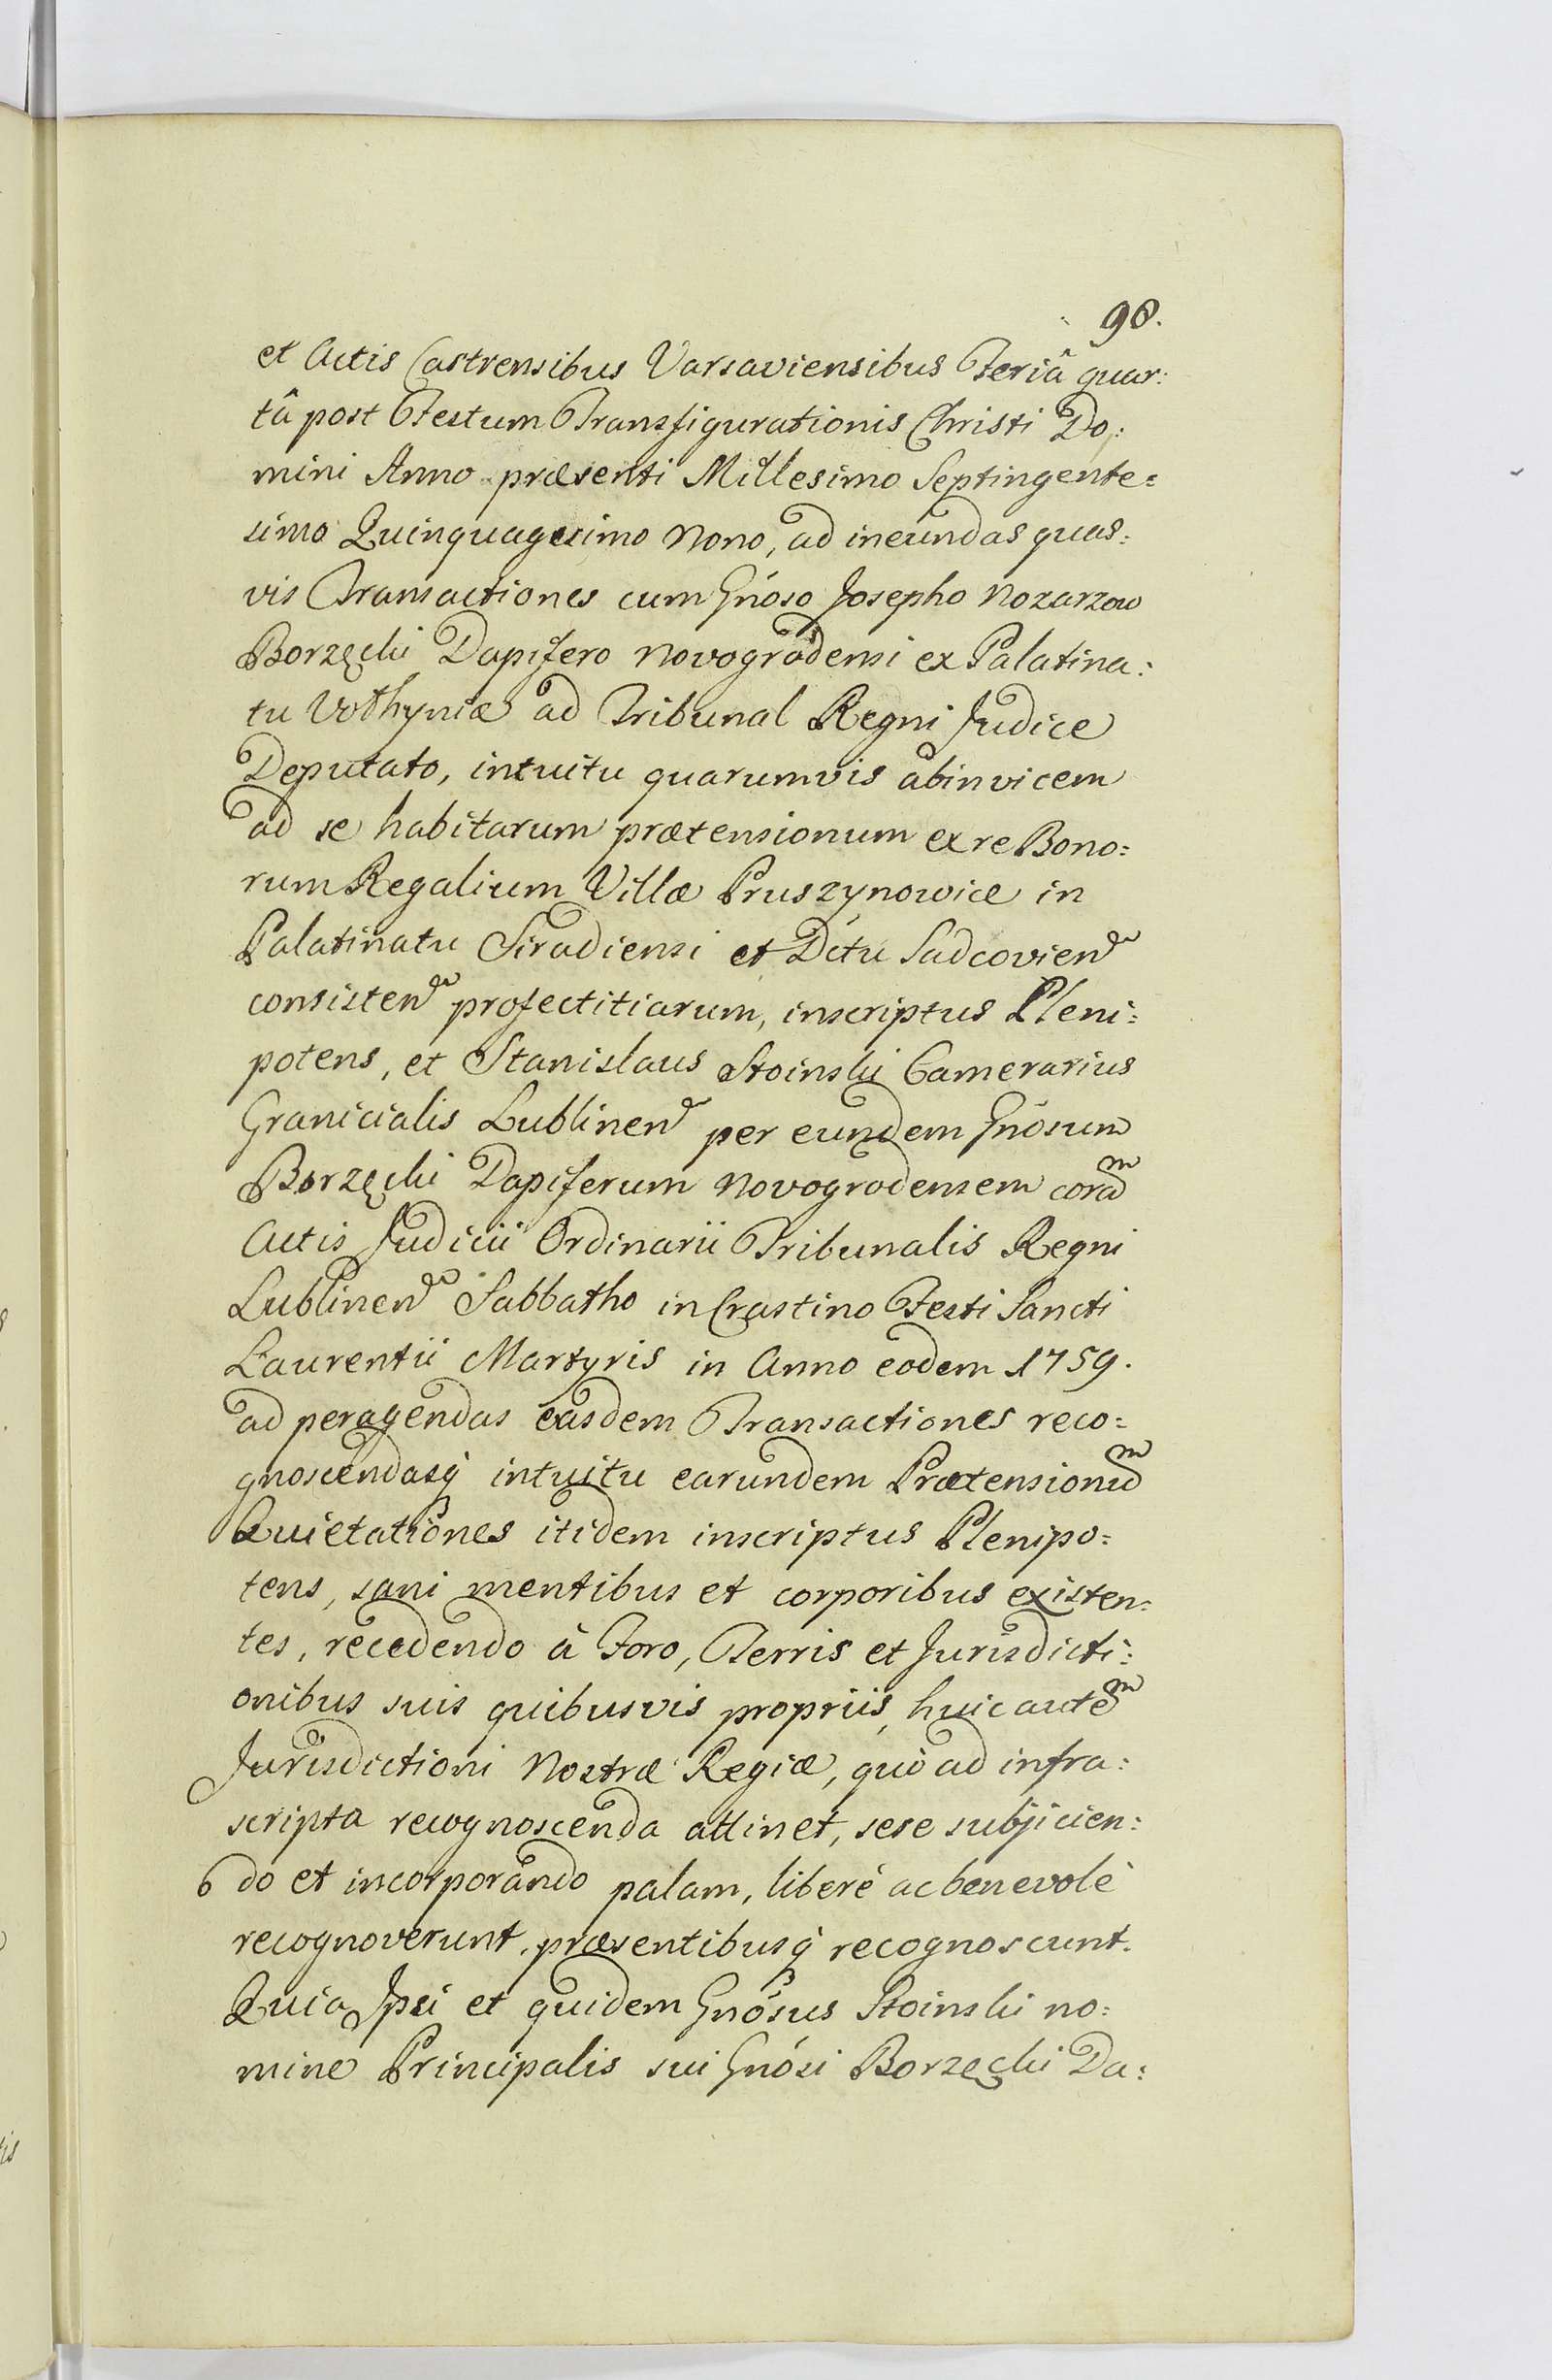 98.
et Actis Castrensibus Varsaviensibus Feriâ quar:
tâ post Festum Transfigurationis Christi Do:
mini Anno præsenti Millesimo Septingente=
simo Quinquagesimo Nono, ad ineundas quas:
vis Transactiones cum Gnóso Josepho Nozarzow
Borzęcki Dapifero Novogrodensi ex Palatina:
tu Volhyniæ ad Tribunal Regni Judice
Deputato, intuitu quarumvis abinvicem
ad se habitarum prætensionum ex re Bono=
rum Regalium Villæ Pruszynowice in
Palatinatu Siradiensi et Dctu Sadcovien
consisten profectitiarum, inscriptus Pleni:
potens, et Stanislaus Stoinski Camerarius
Granicialis Lublinen per eundem Gnósum
Borzęcki Dapiferum Novogrodensem coram
Actis Judicii Ordinarii Tribunalis Regni
Lublinen Sabbatho in Crastino Festi Sancti
Laurentii Martyris in Anno eodem 1759.
ad peragendas easdem Transactiones reco=
gnoscendasq́ intuitu earundem Prætensionum
Quietationes itidem inscriptus Plenipo=
tens, sani mentibus et corporibus existen=
tes, recedendo à Foro, Terris et Jurisdicti:
onibus suis quibusvis propriis, huic autem
Jurisdictioni Nostræ Regiæ, quò ad infra:
scripta recognoscenda attinet, sese subjicien:
do et incorporando palam, liberè ac benevolè
recognoverunt, præsentibusq́ recognoscunt.
Quia Ipsi et quidem Gnósus Stoinski no=
mine Principalis sui Gnósi Borzęcki Da: